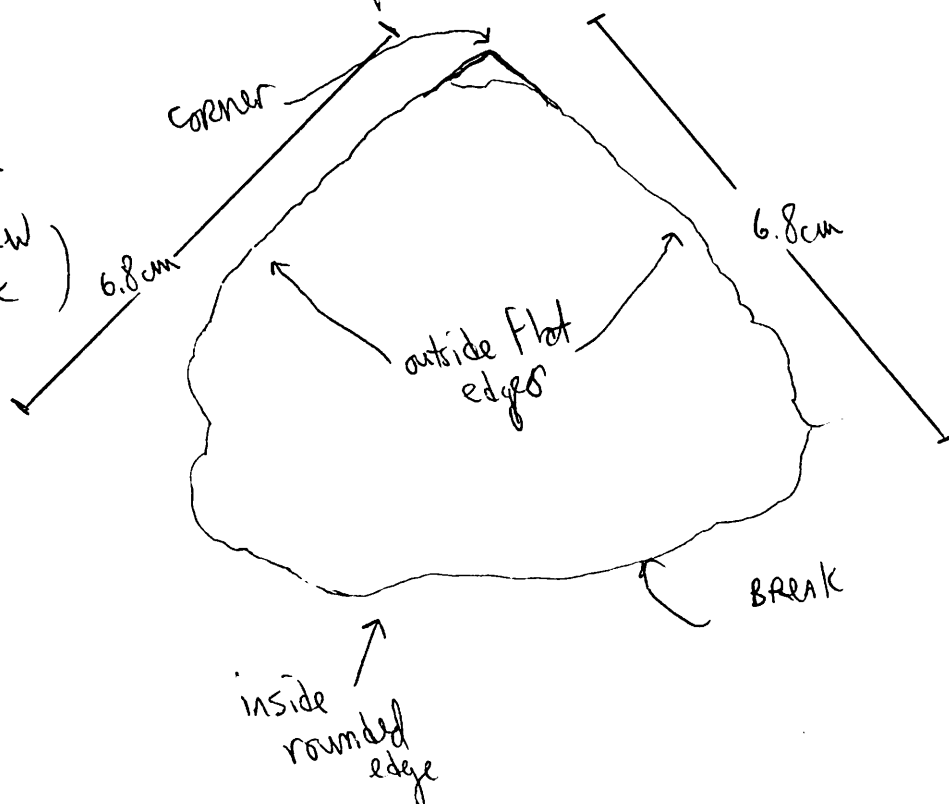 CORNER
6.8cm
6.8cm
outside Flat
edges
BREAK
inside
rounded
edge